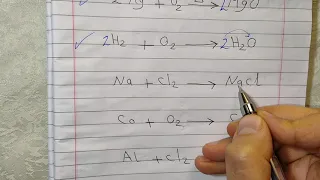 2Mg + O₂ → 2MgO
✓ 2H₂ + O₂ → 2H₂O
Na + Cl₂ → NaCl
Ca + O₂ → C
Al + Cl₂